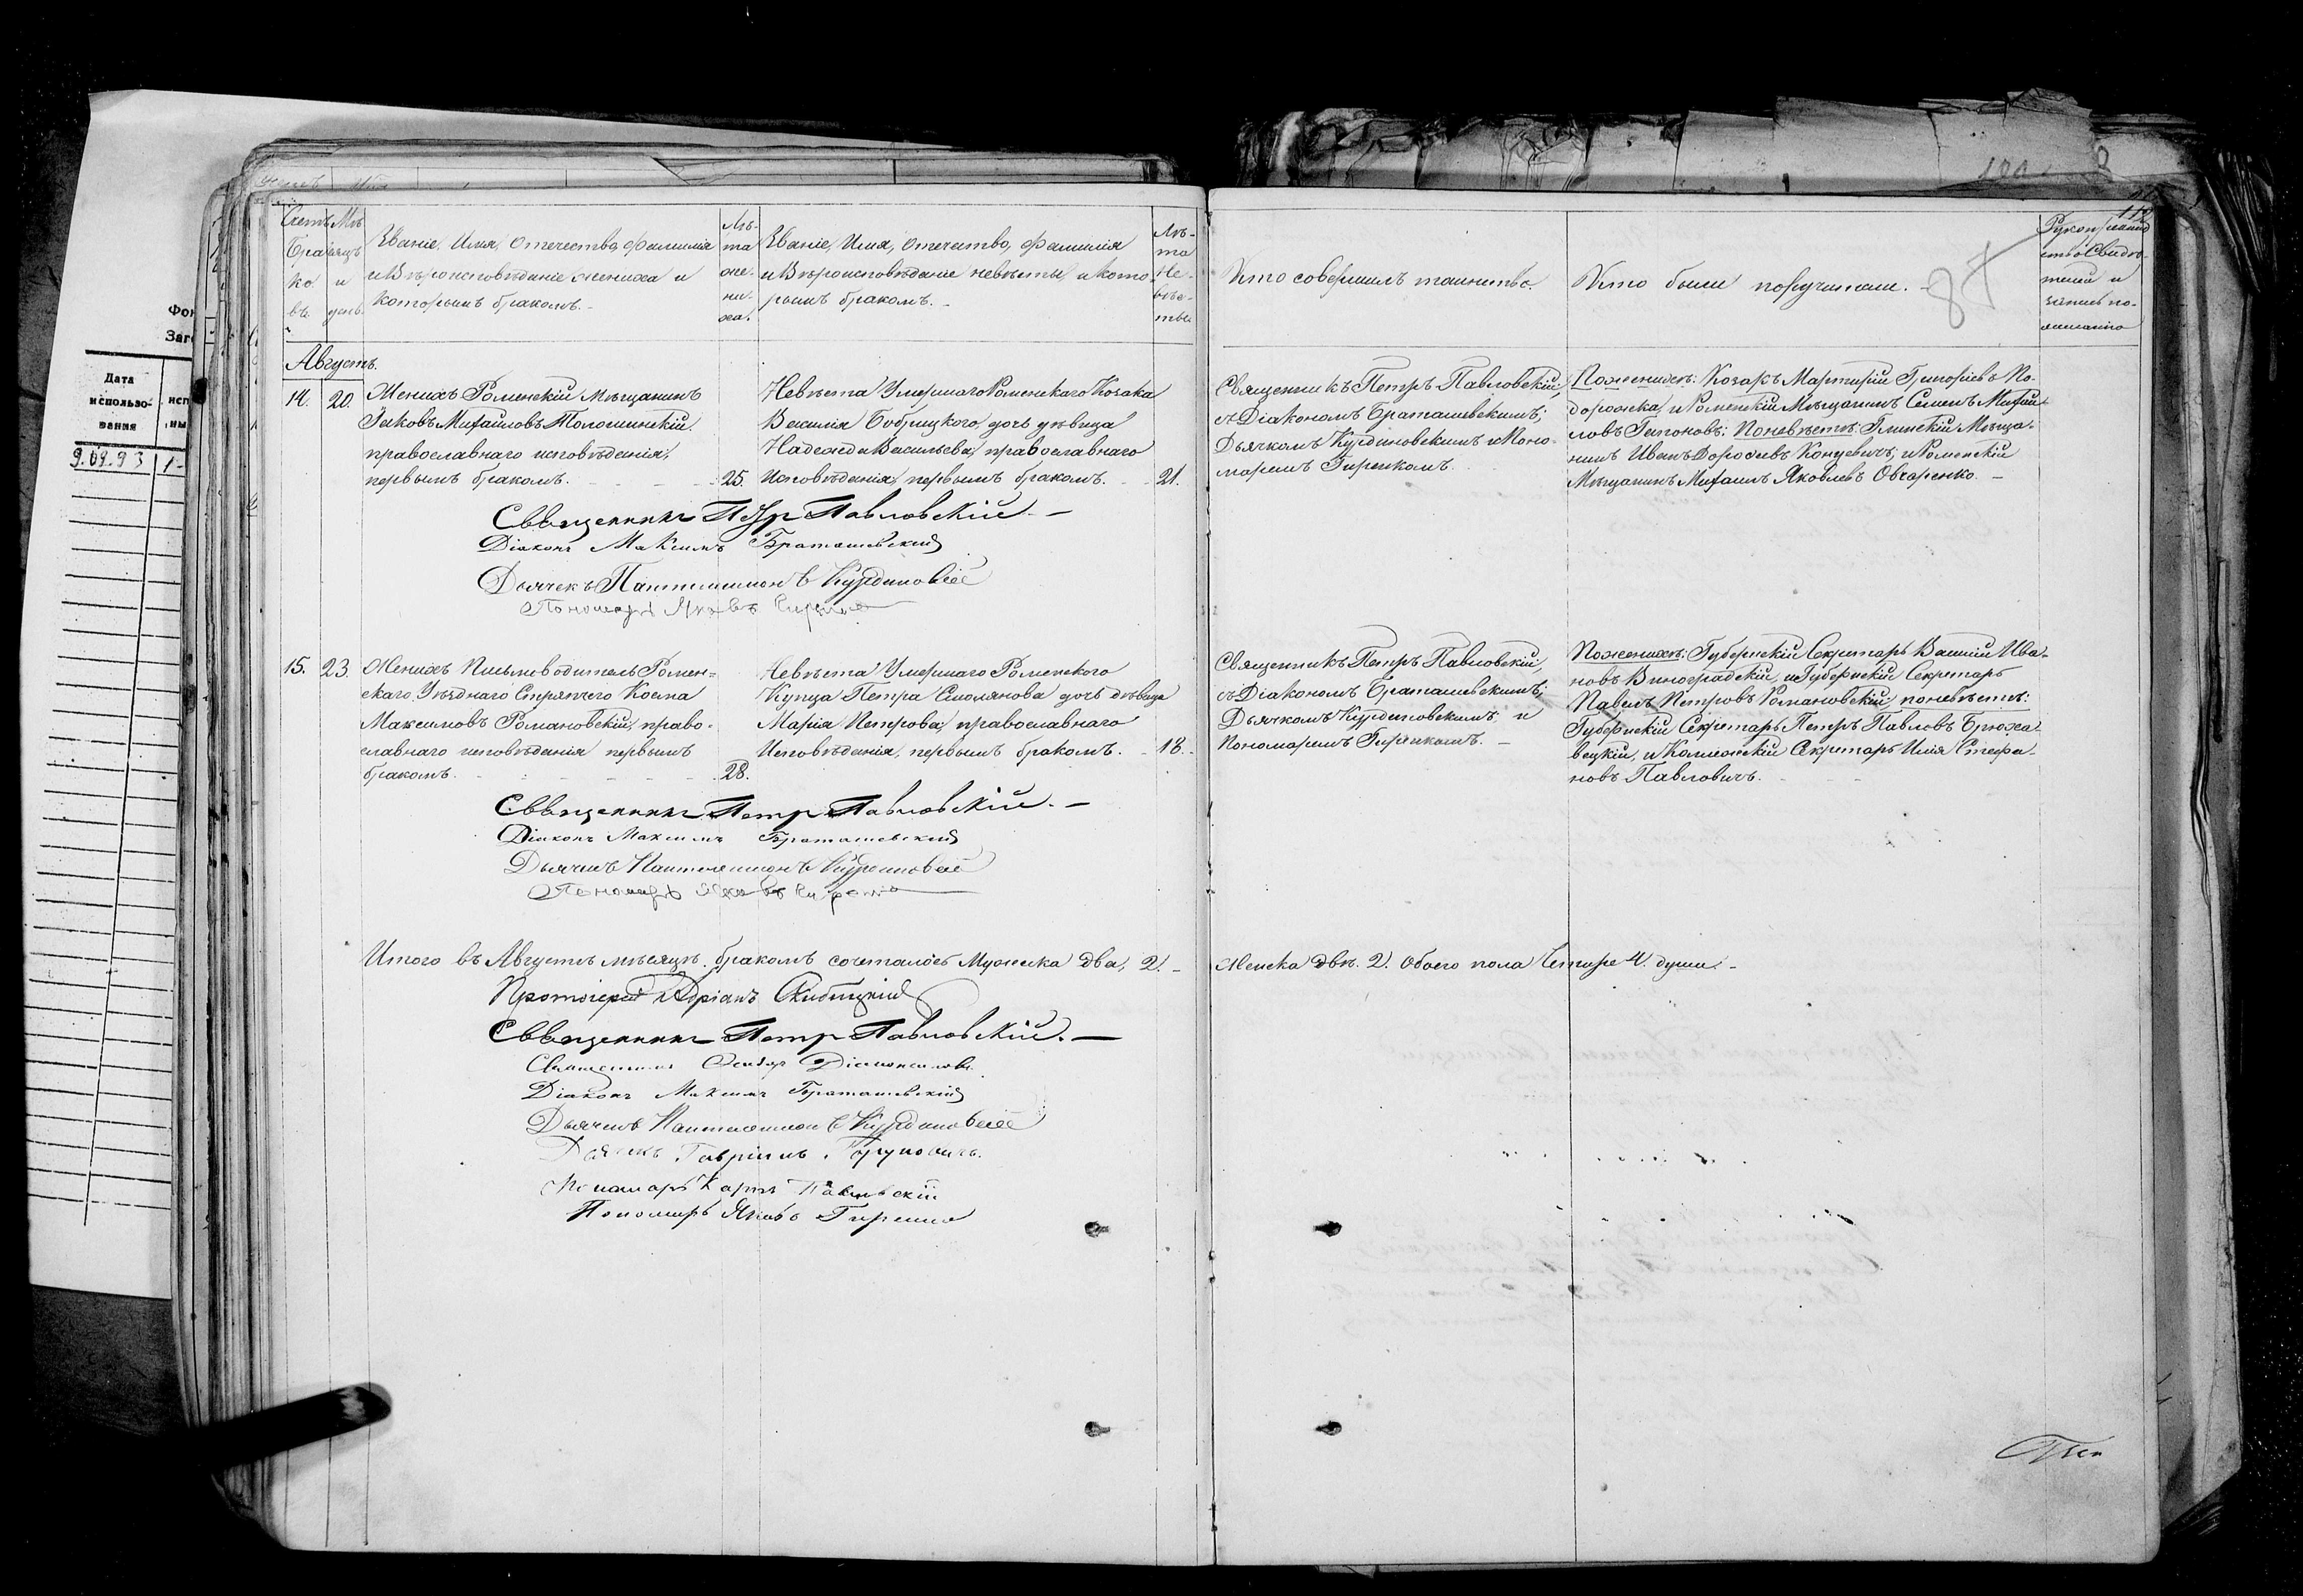 Фо
Заг
Дата
использо-
вания
исп
ны
9.09.93
1-
Счетъ
Бра
ко
въ.
Мѣ
сяцъ
и
день.
Званіе, Имя, Отечество, Фамилія
и Вѣроисповѣданіе жениха и
которымъ бракомъ. -
Лѣ-
та
же-
ни-
ха.
Званіе, Имя, Отечество, Фамилія
и Вѣроисповѣданіе невѣсты, и кото-
рымъ бракомъ. -
Лѣ-
та
Не-
вѣс-
ты
Кто совершилъ таинство.
Кто были поручители. -
112
Августъ.
14.
20.
Женихъ Роменскій Мѣщанинъ
Іаковъ Михаиловъ Толочинскій,
православнаго исповѣданія,
первымъ бракомъ. - - - -
25.
Невѣста Умершаго Роменскаго Козака
Василія Бобрицкого, дочь дѣвица
Надежда Васильева, православнаго
Исповѣданія, первымъ бракомъ. - -
21.
Священникъ Петръ Павловскій,
съ Діакономъ Браташевскимъ;
Дьячкомъ Курдиновскимъ и Поно-
маремъ Гиренкомъ.
По женихѣ: Козакъ Мартирій Григоріевъ По-
дорожка, и Роменскій Мѣщанинъ Семенъ Михаи-
ловъ Гапоновъ; По невѣстѣ: Глинскій Мѣща-
нинъ Иванъ Дорофеевъ Концевичъ, и Роменскій
Мѣщанинъ Михаилъ Яковлевъ Овчаренко. -
Священникъ Петр Павловскій. -
Діаконъ Максимъ Браташевскій
Дьячекъ Пантелимонъ Курдиновскій
Пономарь Яковъ Гиренко
15.
23.
Женихъ Письмоводитель Ромен-
скаго Уѣзднаго Стряпчего Косма
Максимовъ Романовскій, право-
славнаго исповѣданія первымъ
бракомъ. - - - - -
28.
Невѣста Умершаго Роменского
Купца Петра Смолянова дочь дѣвица
Марія Петрова, православнаго
Исповѣданія, первымъ бракомъ. -
18. -
Священникъ Петръ Павловскій,
съ Діакономъ Браташевскимъ;
Дьячкомъ Курдиновскимъ, и
Пономаремъ Гиренкомъ. -
По женихѣ: Губернскій Секретарь Василій Ива-
новъ Виноградскій, и Губернскій Секретарь
Павелъ Петровъ Романовскій; по невѣстѣ:
Губернскій Секретарь Петръ Павловъ Брюха-
вецкій, и Коллежскій Секретарь Илія Стефа-
новъ Павловичъ.
Священникъ Петр Павловскій. -
Діаконъ Максимъ Браташевскій
Дьячекъ Пантелимонъ Курдиновскій
Пономарь Яковъ Гиренко
Итого въ Августѣ мѣсяцѣ бракомъ сочеталось Мужеска два, 2. -
Женска двѣ. 2. Обоего пола Четыре 4. души. -
Протоіерей Адріанъ
Священникъ Петр Павловскій. -
Священникъ
Діаконъ Максимъ Браташевскій
Дьячекъ Пантелимонъ Курдиновскій
Дьячекъ Гавріилъ
Пономарь Карпъ Павловскій
Пономарь Яковъ Гиренко